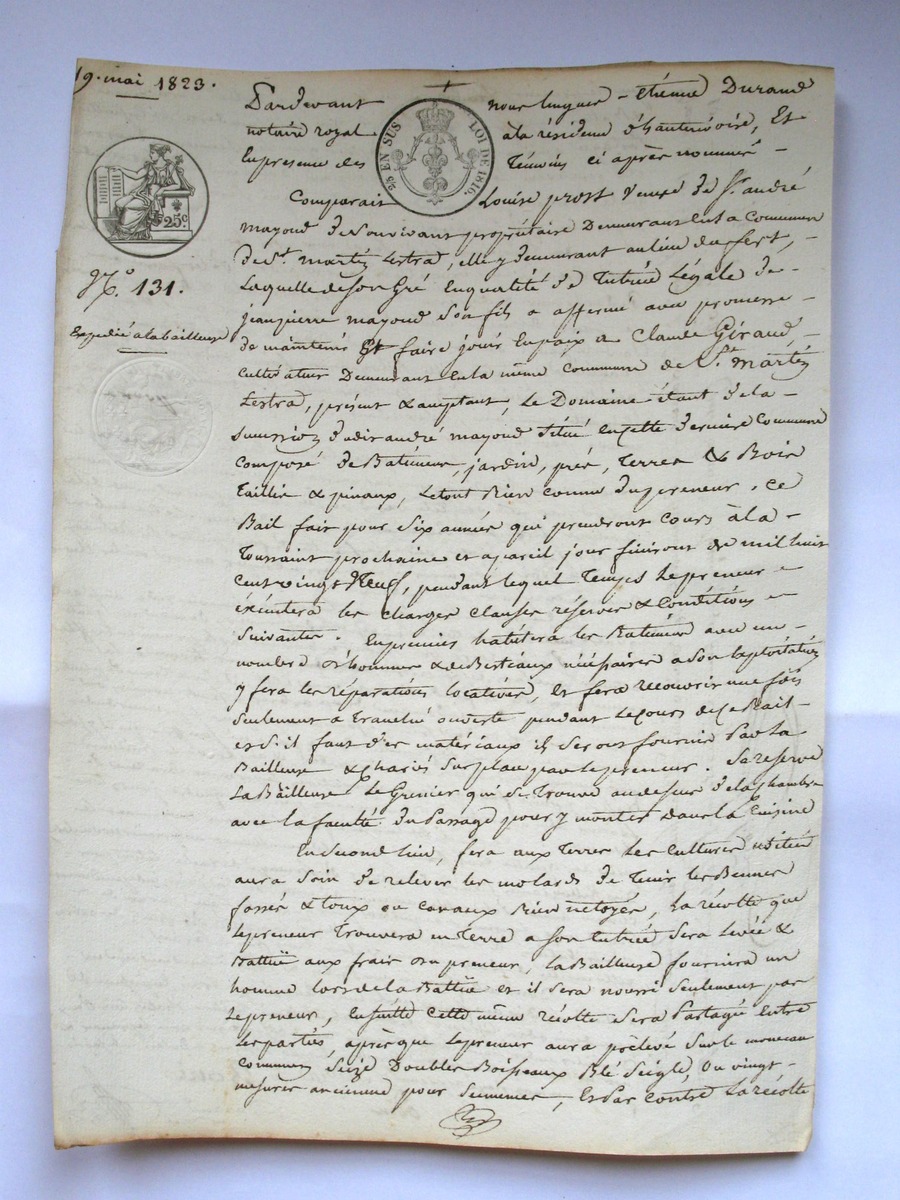 19. mai 1823.
Pardevant nous Hugues - étienne Durand
notaire royal à la résidence d'hauterivoire, Et
En présence des Témoins ci après nommés -
25 EN SUS LOI DE 1816.
25c.
Comparait Louise prost veuve de Sr. andré
mayoud de Souvivant propriétaire Demeurant en la Commune
de St. martin Lestra, elle y demeurant au lieu du
Laquelle de son Gré En qualité de Tutrice Légale de -
N.o 131.
jean pierre mayoud Son fils a affermé avec promesse -
Expédié à la bailleuse
de maintenir Et faire jouir En paix a Claude Giraud,
Cultivateur Demeurant En la même Commune de St. martin
Lestra, présent & acceptant, Le Domaine étant de la -
succession dudit andré mayoud Situé En cette dernière Commune
Composé de Batimens, jardin, prés, Terres & Bois
Taillis & pinaux, Le tout Bien connu du preneur, Ce
Bail fait pour Six années qui prendront Cours à la -
Toussaint prochaine et a pareil jour finiront de mil huit
Cent vingt Neuf, pendant lequel Temps Le preneur -
éxécutera les charges Clauses réserves & Conditions -
Suivantes. En premier habitera les Batimens avec un -
nombre d'hommes & de Bestiaux nécéssaires a Son Exploitation
y fera les réparations locatives, Et fera recouvrir une fois
Seulement a Tranché ouverte pendant Le Cours de Ce Bail -
et S'il faut des matériaux ils Seront fournis Par La
Bailleuse & Chariés Sur place par le preneur. Se reserve
La Bailleuse Le Grenier qui Se Trouve au dessus de la chambre
avec la faculté du Passage pour y monter Dans la Cuisine
En Second lieu, fera aux Terres Les Cultures usitées
aura Soin de relever les molards de Tenir les
fossés & Tous Canaux Bien netoyés, La récolte que
Le preneur Trouvera en Terre a Son Entrée Sera Levée &
Battue aux frais du preneur, La Bailleuse fournira un
homme lors de la Battue et il Sera nourri Seulement par
Le preneur, Ensuite Cette même récolte Sera Partagée Entre
Les parties, après que Le preneur aura prélevé Sur le monceau
Commun Seize Doubles Boisseaux Blé Seigle, Ou vingt -
mesures ancienne pour Semences, Et Par Contre La récolte